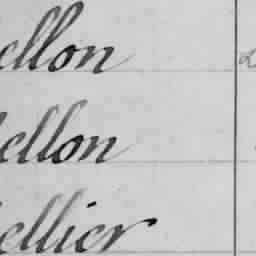 ellon
ellon
ellier